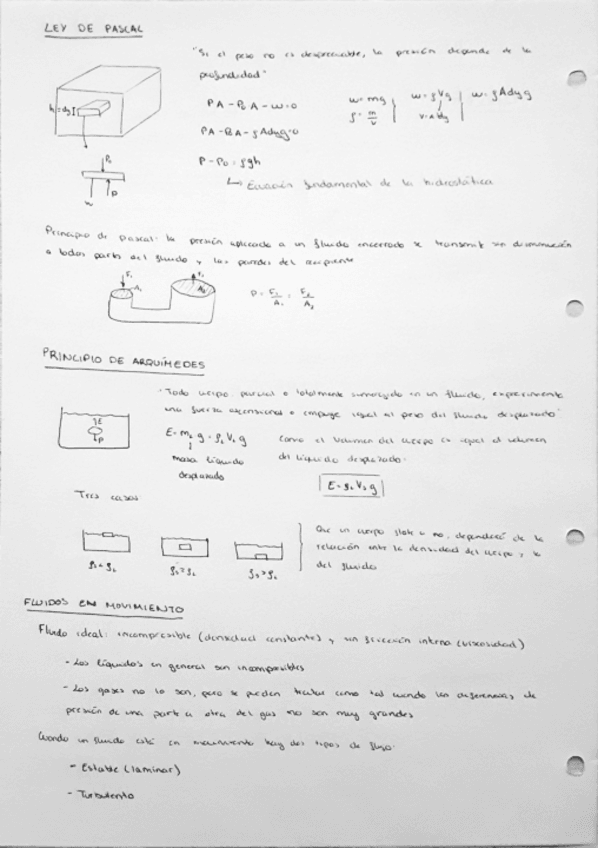 LEY DE PASCAL
"Si el peso no es despreciable, la presión depende de la
profundidad"
h = dy
PA - P₀A - w = 0
w = mg
ρ = m/v
w = ρVg
V = A dy
w = ρAdyg
PA - P₀A - ρAdyg = 0
P - P₀ = ρgh
P₀
w
P
↳ Ecuación fundamental de la hidrostática
Principio de pascal: la presión aplicada a un fluido encerrado se transmite sin disminución
a todas partes del fluido y las paredes del recipiente
F₁
A₁
A₂
P = F₁/A₁ = F₂/A₂
PRINCIPIO DE ARQUÍMEDES
"Todo cuerpo, parcial o totalmente sumergido en un fluido, experimenta
una fuerza ascensional o empuje igual al peso del fluido desplazado"
E
P
E = m_L g = ρ_L V_L g
masa líquido
desplazado
Como el volumen del cuerpo es igual al volumen
del líquido desplazado:
Tres casos
Que un cuerpo flote o no, dependerá de la
relación entre la densidad del cuerpo y la
del fluido
FLUIDOS EN MOVIMIENTO
Fluido ideal: incompresible (densidad constante) y sin fricción interna (viscosidad)
- Los líquidos en general son incompresibles
- Los gases no lo son, pero se pueden tratar como tal cuando las diferencias de
presión de una parte a otra del gas no son muy grandes
Cuando un fluido está en movimiento hay dos tipos de flujo:
- Estable (laminar)
- Turbulento